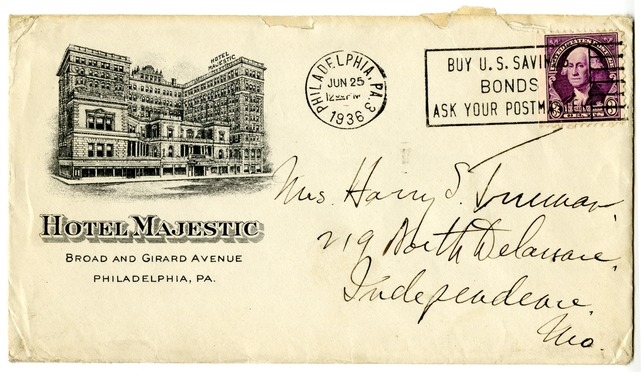 HOTEL MAJESTIC
HOTEL MAJESTIC
BROAD AND GIRARD AVENUE
PHILADELPHIA, PA.
PHILADELPHIA, PA. 3
JUN 25
1936
BUY U.S. SAVIN
BONDS
ASK YOUR POSTM
3
Mrs. Harry S. Truman
219 North Delaware.
Independence.
Mo.